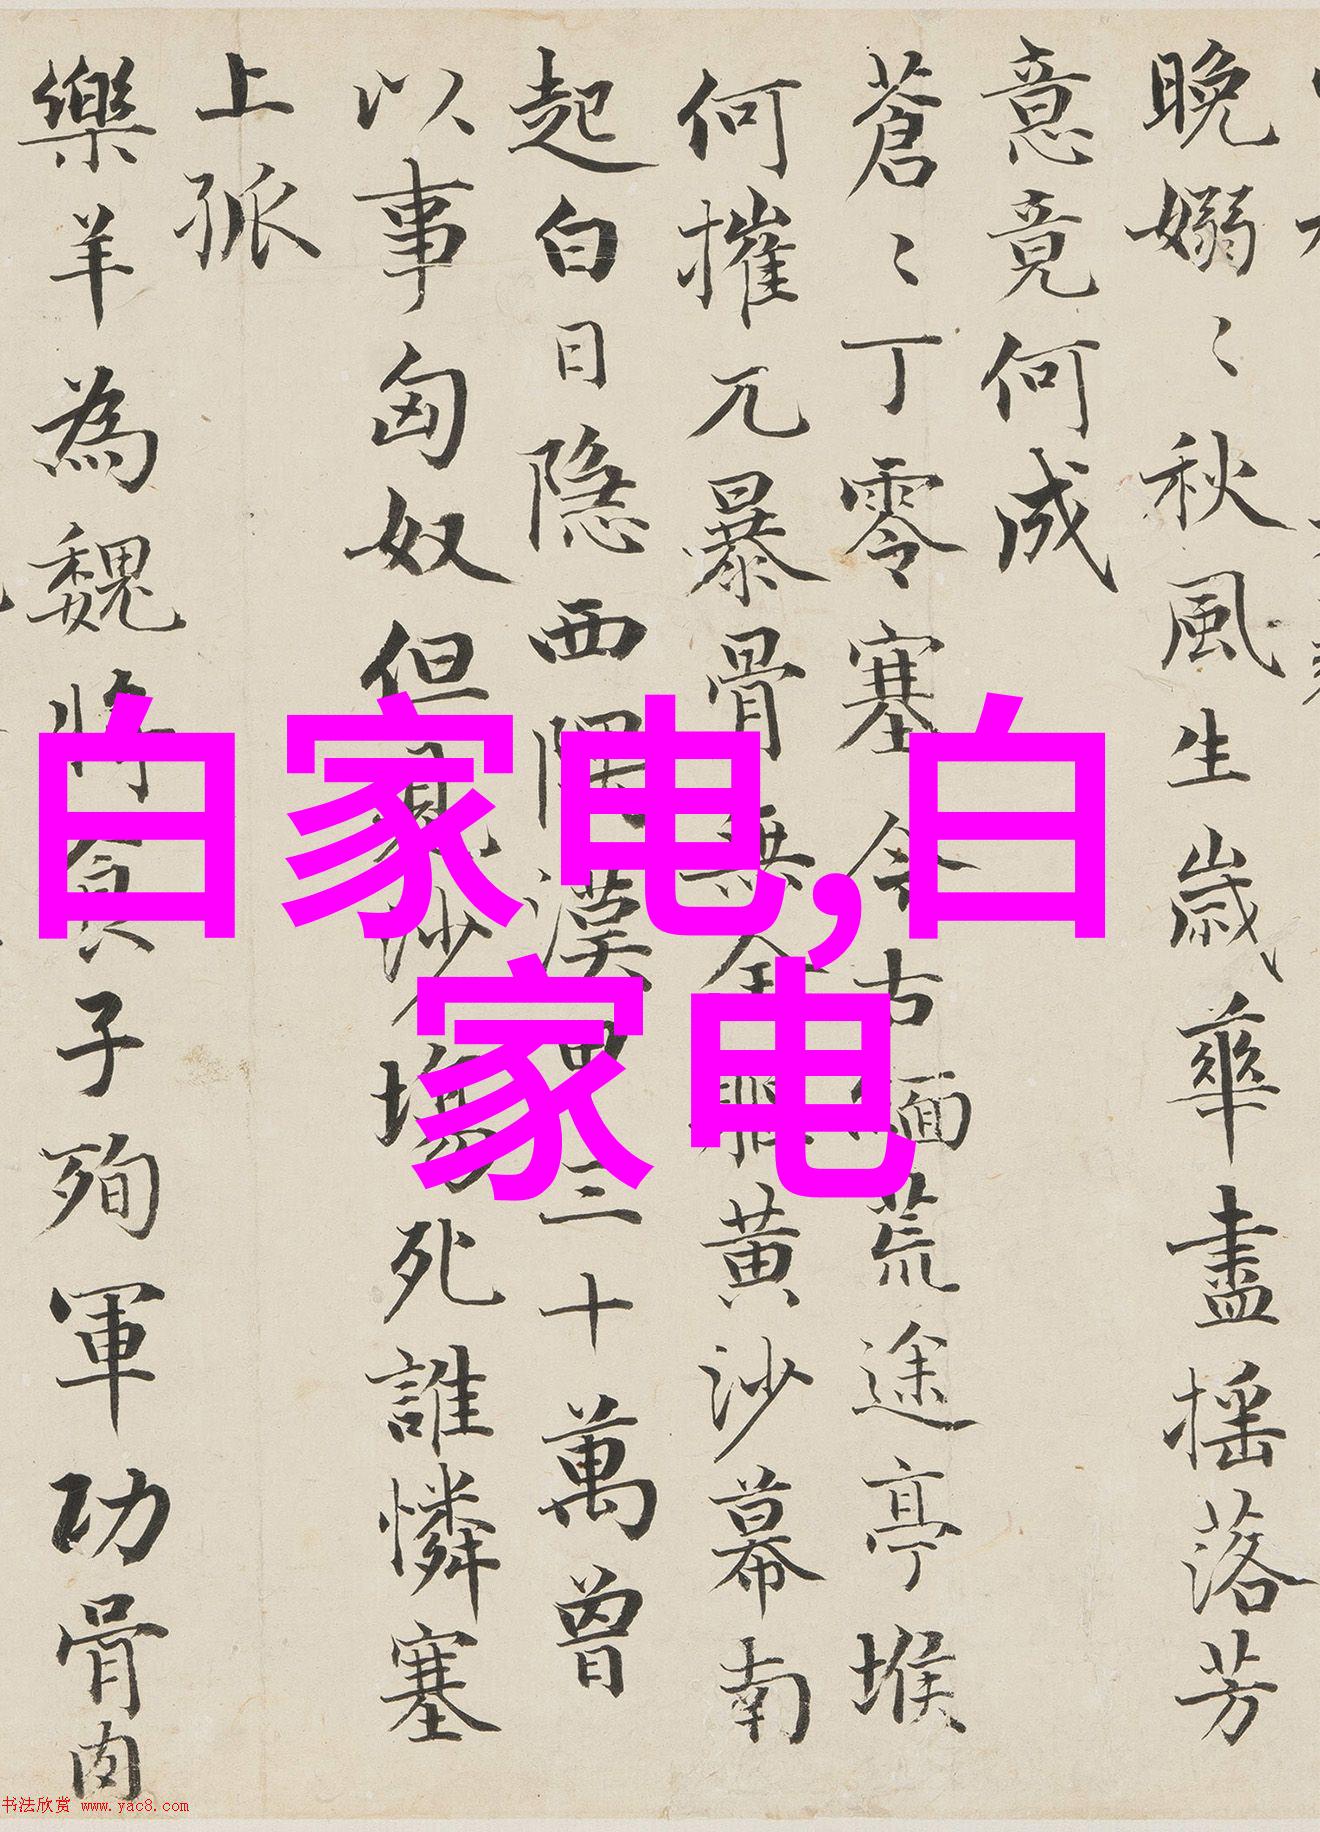 晚嫋〻秋風生歲華盡揺落芳
意竟何成
蒼〻丁零塞今古緬荒途亭堠
何摧兀暴骨無全黄沙幕南
起白日隱西隅漢甲三十萬曾
以事匈奴但見沙塲死誰憐塞
上孤
樂羊為魏將食子殉軍功骨肉
白家电,白
家电
书法欣赏 www.yac8.com